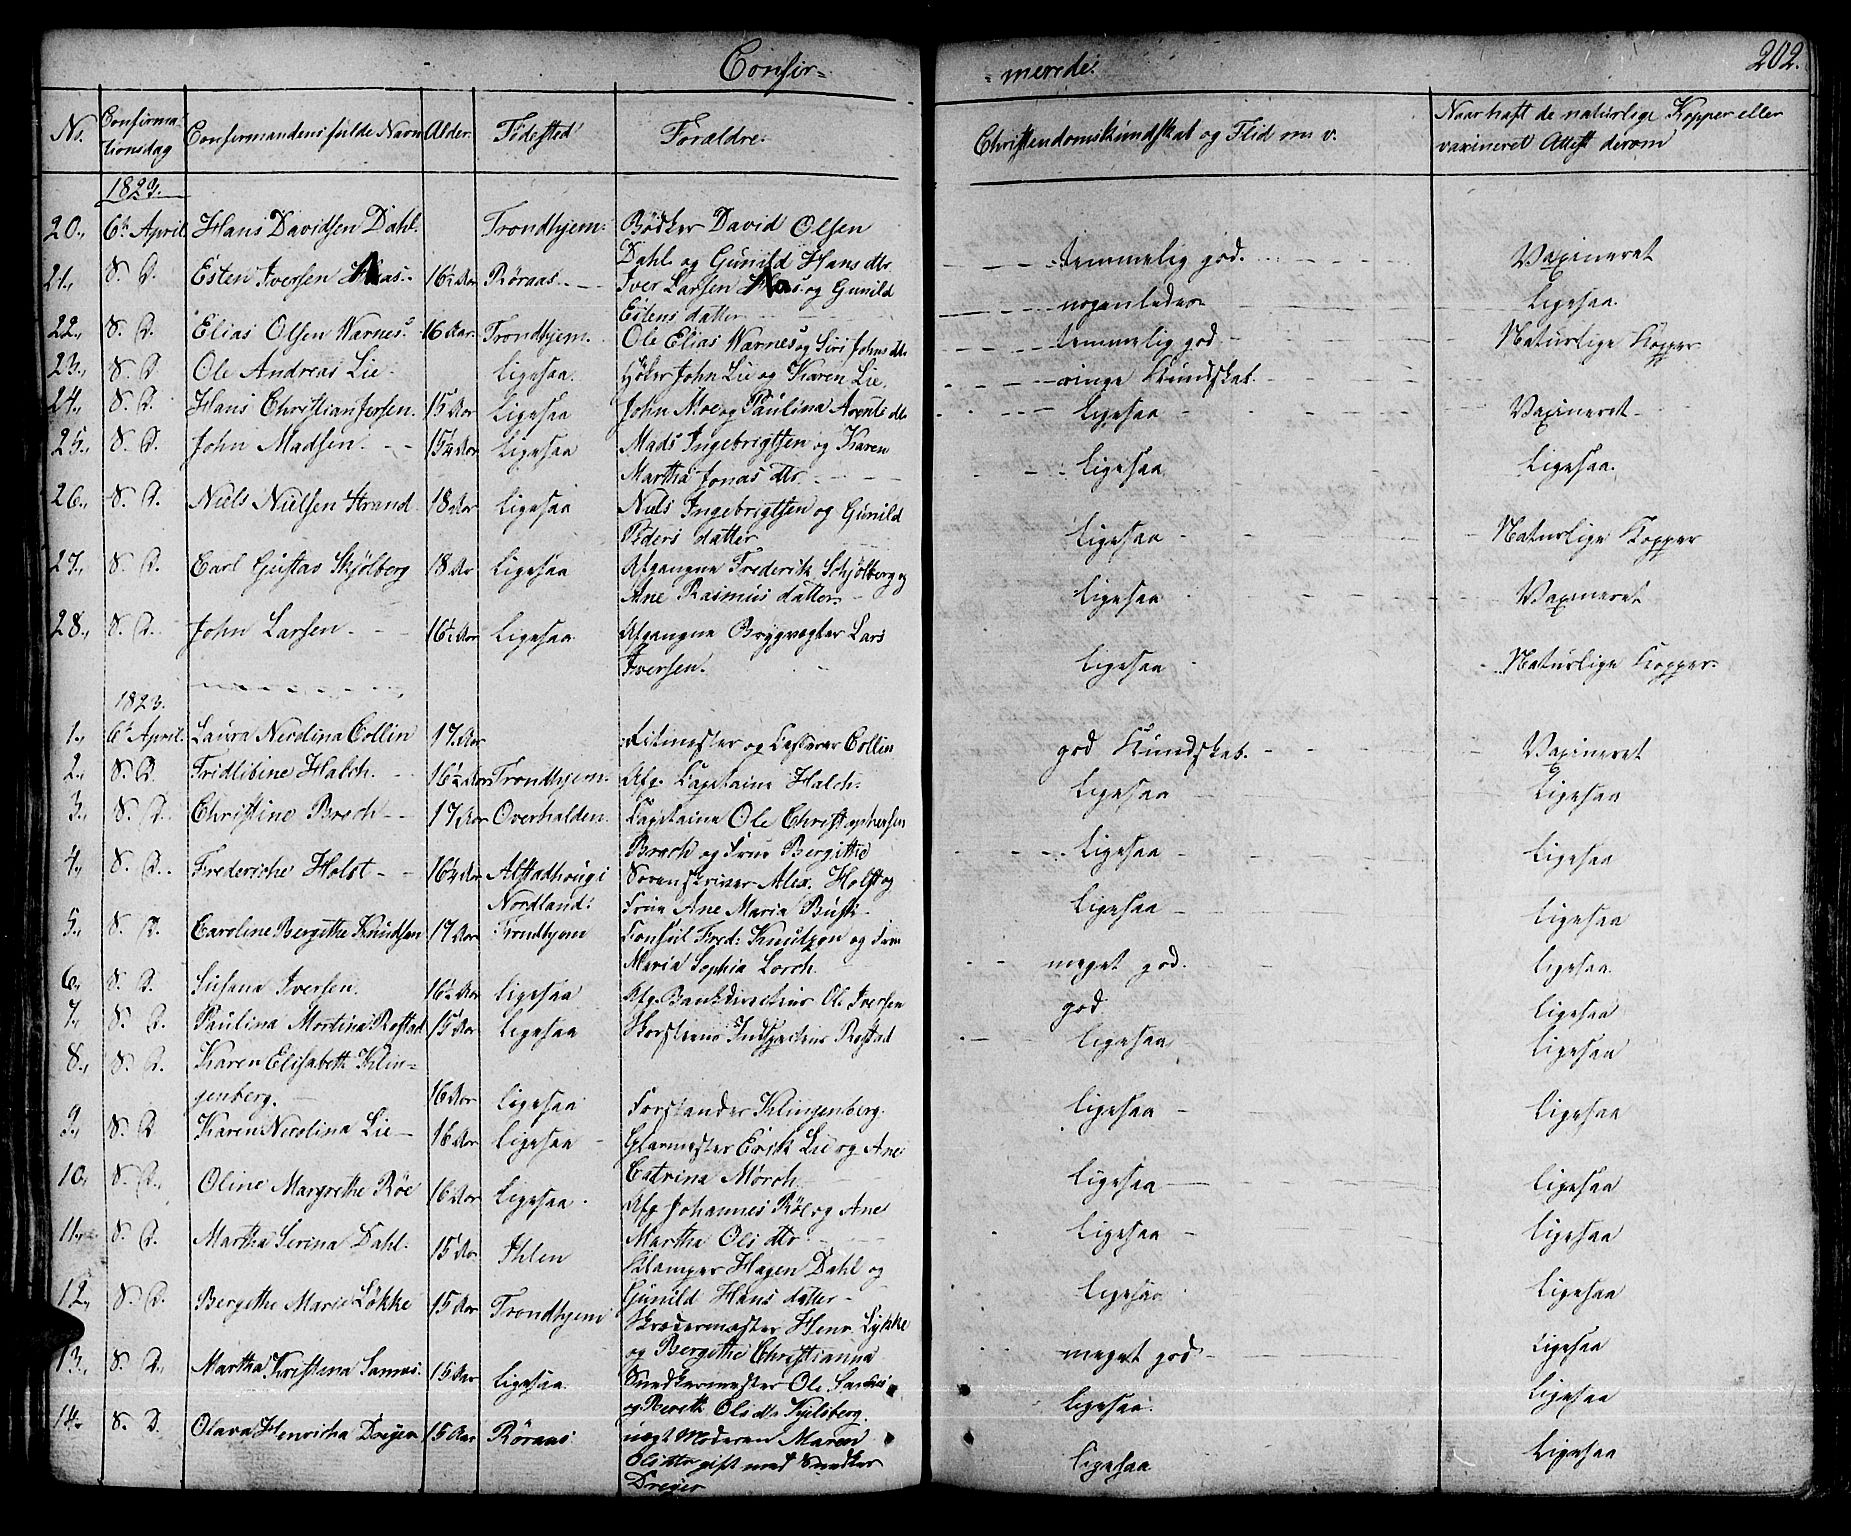 Confir= =merede. 202.
No. Confirma-tionsdag Confirmandens fulde Navn Alder Födested Forældre. Christendomskundskab og Flid m. v. Naar haft de naturlige Kopper eller vaxineret Attest derom
1823.
20., 6te April Hans Davidsen Dahl. Trondhjem. Bödker David Olsen
Dahl og Gunild Hans dtr temmelig god. Vaxineret
21., d. D. Esten Iversen Aas. 16½ Aar Röraas. Iver Larsen Aas og Gunild
Estens datter nogenledes Ligesaa.
22., d. D. Elias Olsen Warnes. 16 Aar. Trondhjem. Ole Elias Warnes og Siri Johns dtr temmelig god Naturlige Kopper
23., d. D. Ole Andreas Lie. Ligesaa. Höker John Lie og Karen Lie. ringe Kundskab.
24., d. D. Hans Christian Jensen. 15 Aar Ligesaa John Moe og Paulina Arents dtr Ligesaa Vaxineret
25., d. D. John Madsen. 15½ Aar Ligesaa Mads Ingebrigtsen og Karen
Martha Jonas dtr Ligesaa Ligesaa.
26., d. D. Niels Nielsen Strand 18 Aar Ligesaa Niels Ingebrigtsen og Gunild
Peders datter Ligesaa Naturlige Kopper
27., d. D. Carl Gustav Skjölberg 18 Ar Ligesaa Afgangne Frederik Schjölberg og
Ane Rasmus datter. Ligesaa Vaxineret
28., d. D. John Larsen. 16½ Aar Ligesaa Afgangne Brygvogter Lars
Iversen. Ligesaa Naturlige Kopper
1823.
1., 6te April. Laura Nicolina Collin 17 Aar Ritmester og Casserer Collin god Kundskab. Vaxineret
2., d. D. Fridlibine Halch. 16½ Aar Trondhjem. Afg. Capitaine Halch. Ligesaa Ligesaa
3., d. D. Christine Brech 17 Aar Overhalden. Capitaine Ole Christophersen
Brech og Frue Bergitha Ligesaa Ligesaa
4., d. D. Frederiche Holst 16½ Aar Alstadhoug i Sorenskriver Alex. Holst og
Nordland: Frue Ane Maria Busk. Ligesaa Ligesaa
5., d. D. Caroline Bergithe Knudsen 17 Aar Trondhjem Consul Fred: Knutzon og Frue
Maria Sophia Lorch. meget god. Ligesaa
6., d. D. Susana Iversen. 16½ Aar Ligesaa Afg. Bankdirecteur Ole Iversen god Ligesaa
7., d. D. Paulina Martina Rostad 15 Aar Ligesaa Skorsteens Inspecteur Rostad Ligesaa Ligesaa
8., d. D. Karen Elisabeth Klin=
genberg. 16 Aar Ligesaa Forstander Klingenberg. Ligesaa Ligesaa
9., d. D. Karen Nicolina Lie 16 Aar Ligesaa Glarmester Erik Lie og Ane
Catrina Mörch. Ligesaa Ligesaa
10., d. D. Oline Margrethe Röe 16 Aar Ligesaa Afg. Johannes Röe og Ane
Martha Ols dtr. Ligesaa Ligesaa
11., d. D. Martha Serina Dahl. 15 Aar Ihlen Klamper Hagen Dahl og
Gunild Hans datter Ligesaa Ligesaa
12., d. D. Bergethe Marie Lökke 15 Aar Trondhjem Skrædermester Henr. Lykke
og Bergethe Christianna meget god Ligesaa
13., d. D. Martha Kristina Sannes. 15 Aar Ligesaa Snedkermester Ole Sannes
og Bereth Ols dtr Kjelsberg. Ligesaa Ligesaa
14. d. D. Olava Henricha Dreyer 15 Aar Röraas uægt Moderen Maren
Ols dtr gift med Snedker
Dreyer Ligesaa Ligesaa